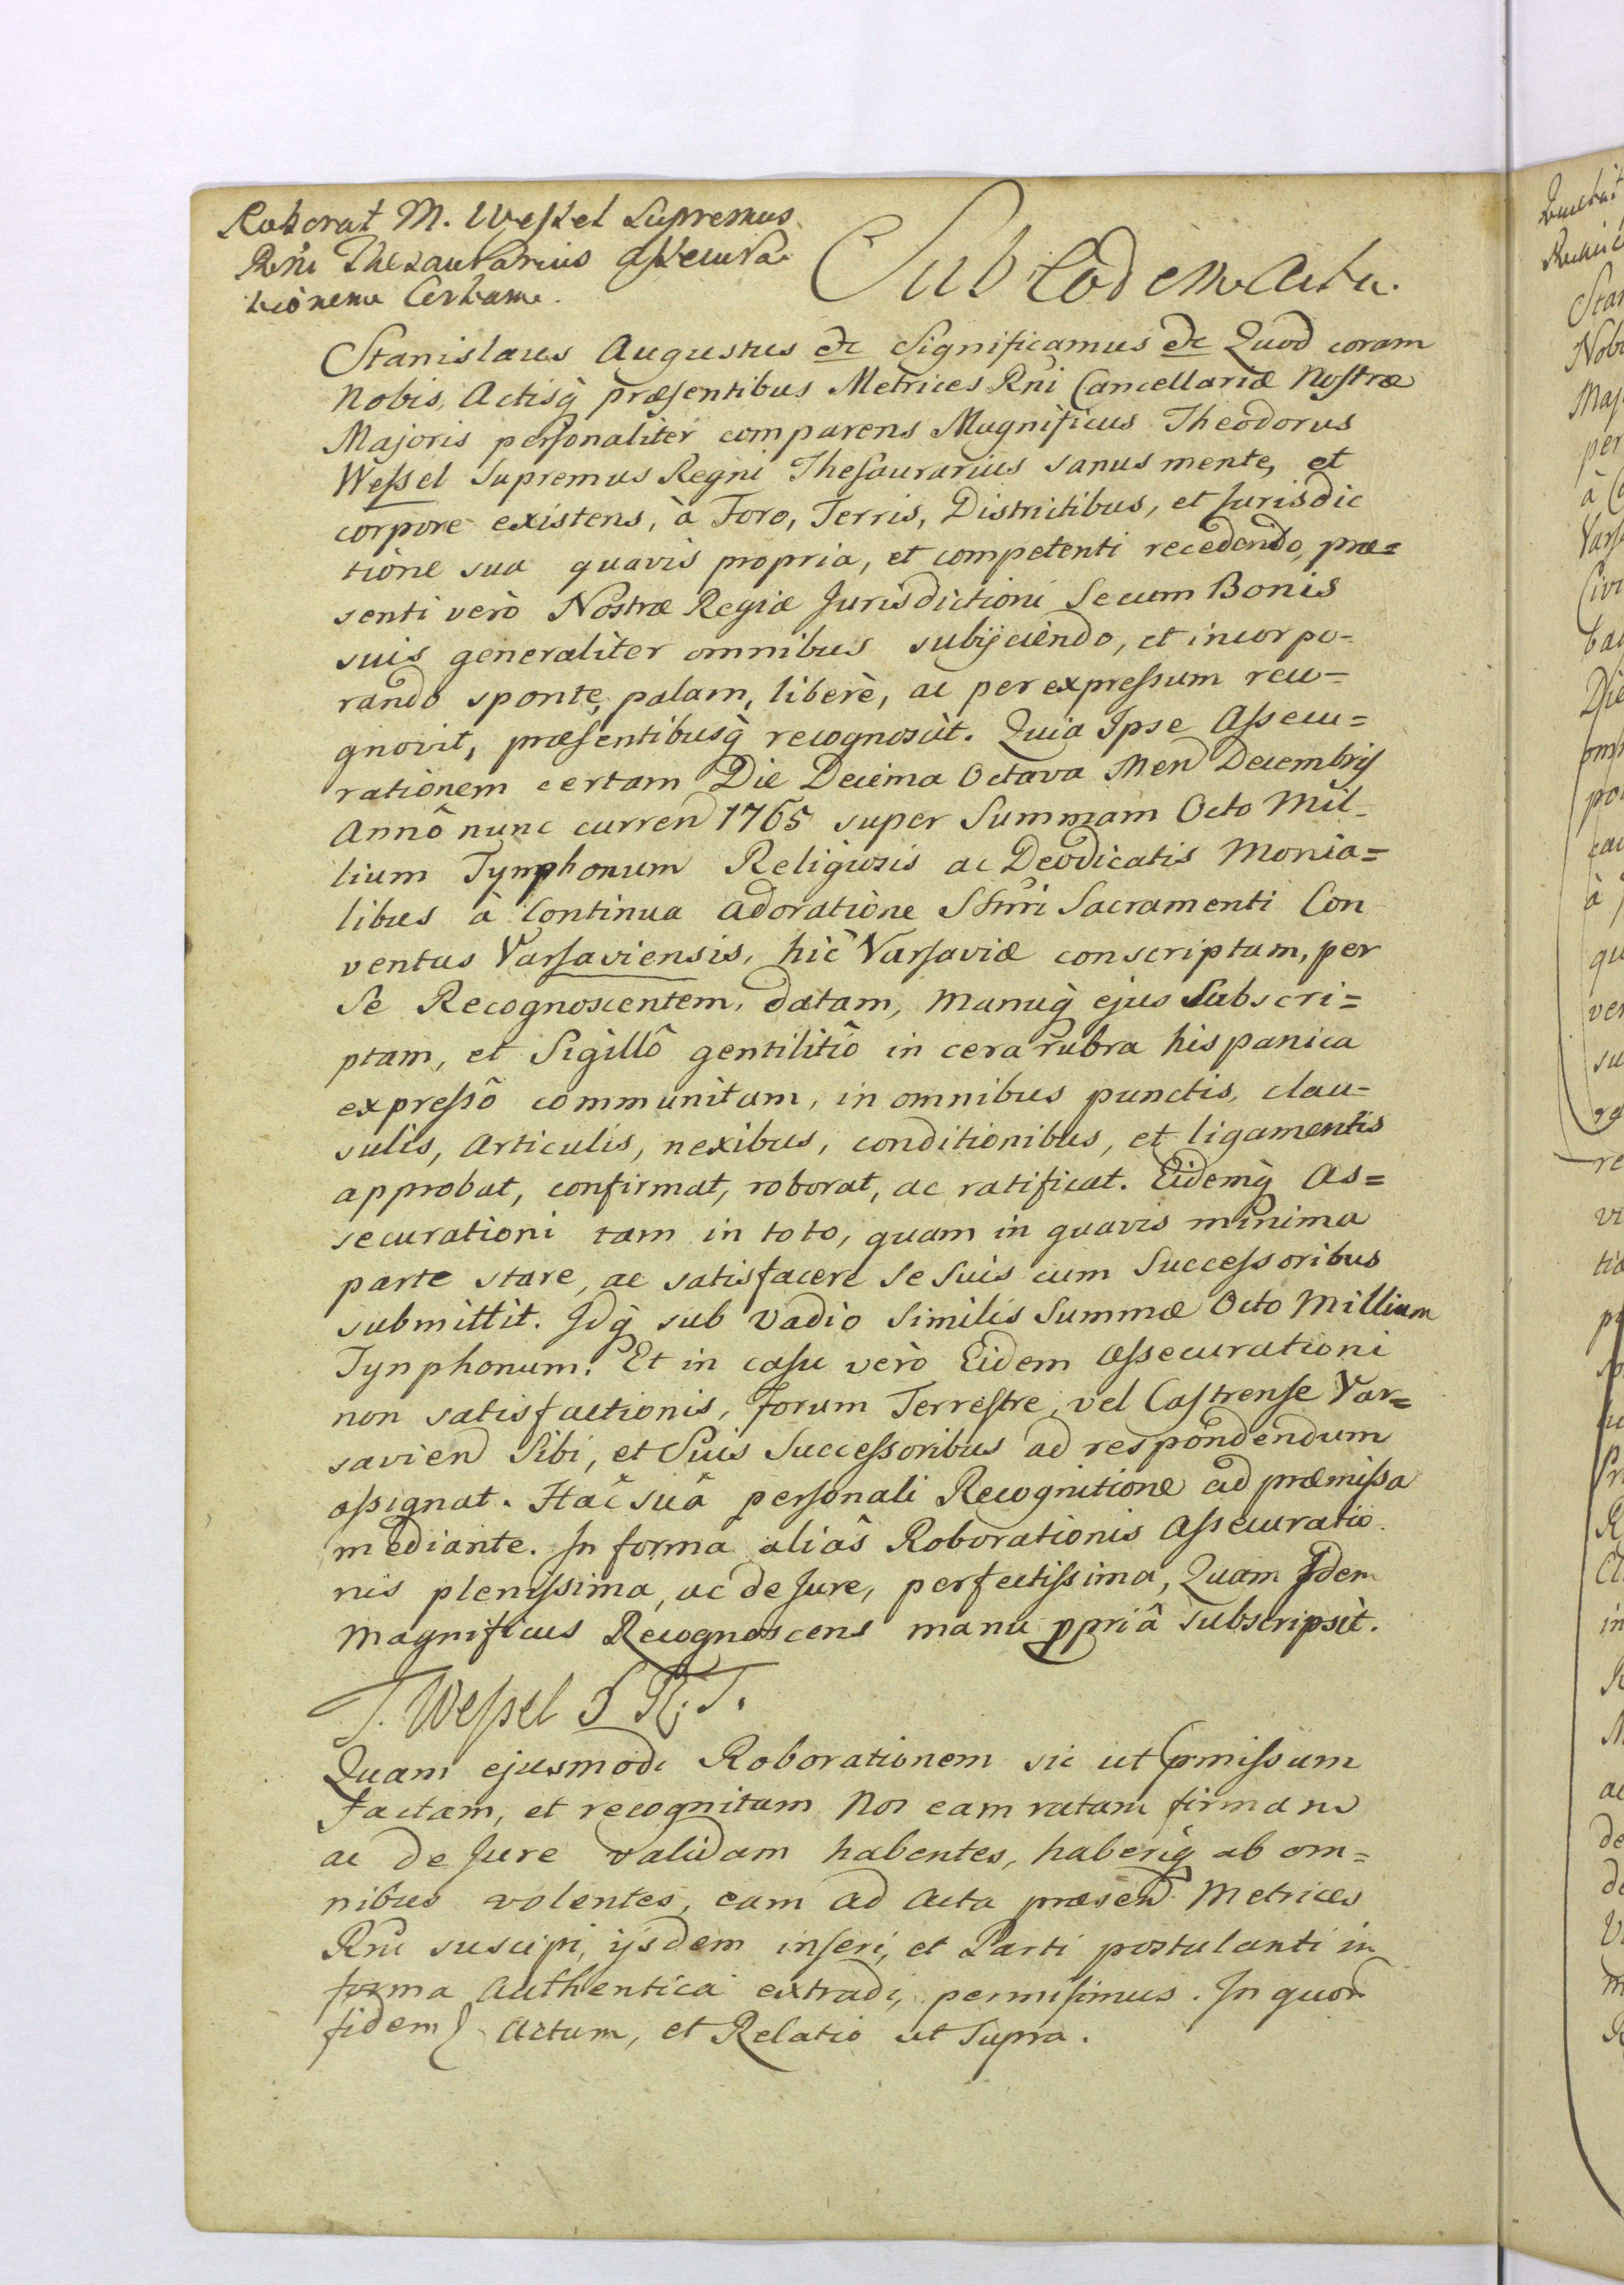 Roborat M. Wessel Supremus
Rñi Thesaurarius assecura
tionem Certam.
Sub Eodem Actu.
Stanislaus Augustus etc Significamus etc Quod coram
Nobis, Actisq̀ præsentibus Metrices Rñi Cancellariæ Nostræ
Majoris personaliter comparens Magnificus Theodorus
Wessel Supremus Regni Thesaurarius sanus mente, et
corpore existens, à Foro, Terris, Districtibus, et Jurisdic
tione sua quavis propria, et competenti recedendo, præ=
senti verò Nostræ Regiæ Jurisdictioni Se cum Bonis
suis generaliter omnibus subijciendo, et incorpo-
rando sponte, palam, liberè, ac per expressum reco-
gnovit, præsentibusq̀ recognoscit. Quia Ipse Assecu=
rationem certam Die Decima Octava Men Decembris
Annô nunc curren 1765 super Summam Octo Mil-
lium Tymphonum Religiosis ac Deodicatis Monia=
libus à Continua Adoratione Sstmi Sacramenti Con
ventus Varsaviensis, hic Varsaviæ conscriptam, per
Se Recognoscentem, datam, Manuq̀ ejus Subscri=
ptam, et Sigillô gentilitiô in cera rubra hispanica
expressô communitam, in omnibus punctis, clau-
sulis, Articulis, nexibus, conditionibus, et ligamentis
approbat, confirmat, roborat, ac ratificat. Eidemq̀ As=
securationi tam in toto, quam in quavis minima
parte stare, ac satisfacere Se Suis cum Successoribus
submittit. Idq̀ sub Vadio Similis Summæ Octo Millium
Tynphonum. Et in casu verò Eidem Assecurationi
non satisfactionis, Forum Terrestre, vel Castrense Var=
savien Sibi, et Suis Successoribus ad respondendum
assignat. Hac suâ personali Recognitione ad præmissa
mediante. In forma aliâs Roborationis Assecuratio
nis plenissima, ac de Jure, perfectissima, Quam Idem
Magnificus Recognoscens manu ppriâ subscripsit.
T. Wessel S R. T.
Quam ejusmodi Roborationem sic ut pmissum
factam, et recognitam Nos eam ratam firmam
ac de Jure validam habentes, haberiq̀ ab om=
nibus volentes, eam ad Acta præsen Metrices
Rñi suscipi, ijsdem inseri, et Parti postulanti in
forma Authentica extradi, permisimus. In quor
fidem Actum, et Relatio ut Supra.